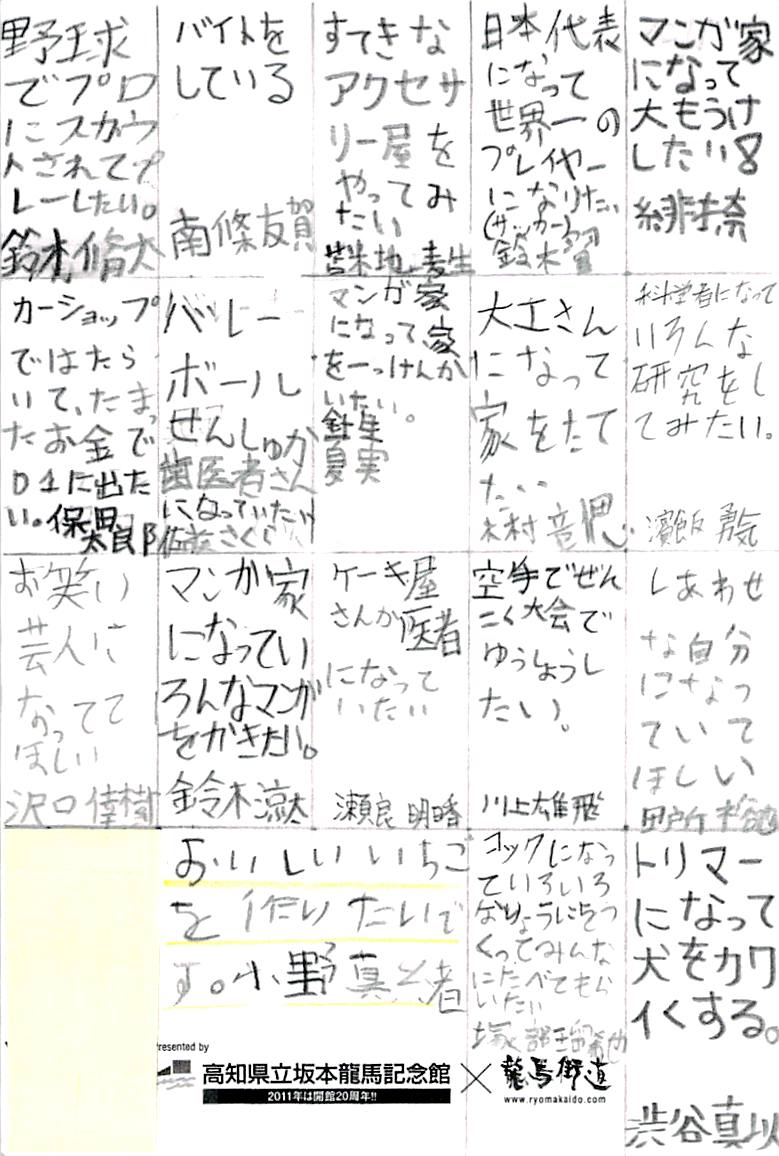 野球
でプロ
にスカウ
トされてプ
レーしたい。
鈴木脩太
バイトを
している
南條友賀
すてきな
アクセサ
リー屋を
やってみ
たい
苫米地 麦生
日本代表
になって
世界一の
プレイヤー
になりたい
(サッカー)
鈴木賢
マンガ家
になって
大もうけ
したい
カーショップ
ではたら
いて、たまっ
たお金で
D1に出た
い。保田
太良阝
バレー
ボール
せんしゅか
歯医者さん
になっていたい
佐藤さくら
マンガ家
になって、家
を一っけんか
いたい。
夏実
大工さん
になって
家をたて
たい
木村竜
科学者になって
いろんな
研究をし
てみたい。
濱飯 勇気
お笑い
芸人に
なってて
ほしい
沢口 佳樹
マンガ家
になってい
ろんなマンガ
をかきたい。
鈴木涼太
ケーキ屋
さんか医者
になって
いたい
瀬良 明香
空手でぜん
こく大会で
ゆうしょうし
たい。
川上雄飛
しあわせ
な自分
になっ
ていて
ほしい
田所
おいしいいちご
を作りたいで
す。小野真
コックになっ
ていろいろ
なりょうりをつ
くってみんな
にたべてもら
いたい
トリマー
になって
犬をカワ
イくする。
渋谷真以
Presented by
高知県立坂本龍馬記念館
2011年は開館20周年!!
×
龍馬街道
www.ryomakaido.com